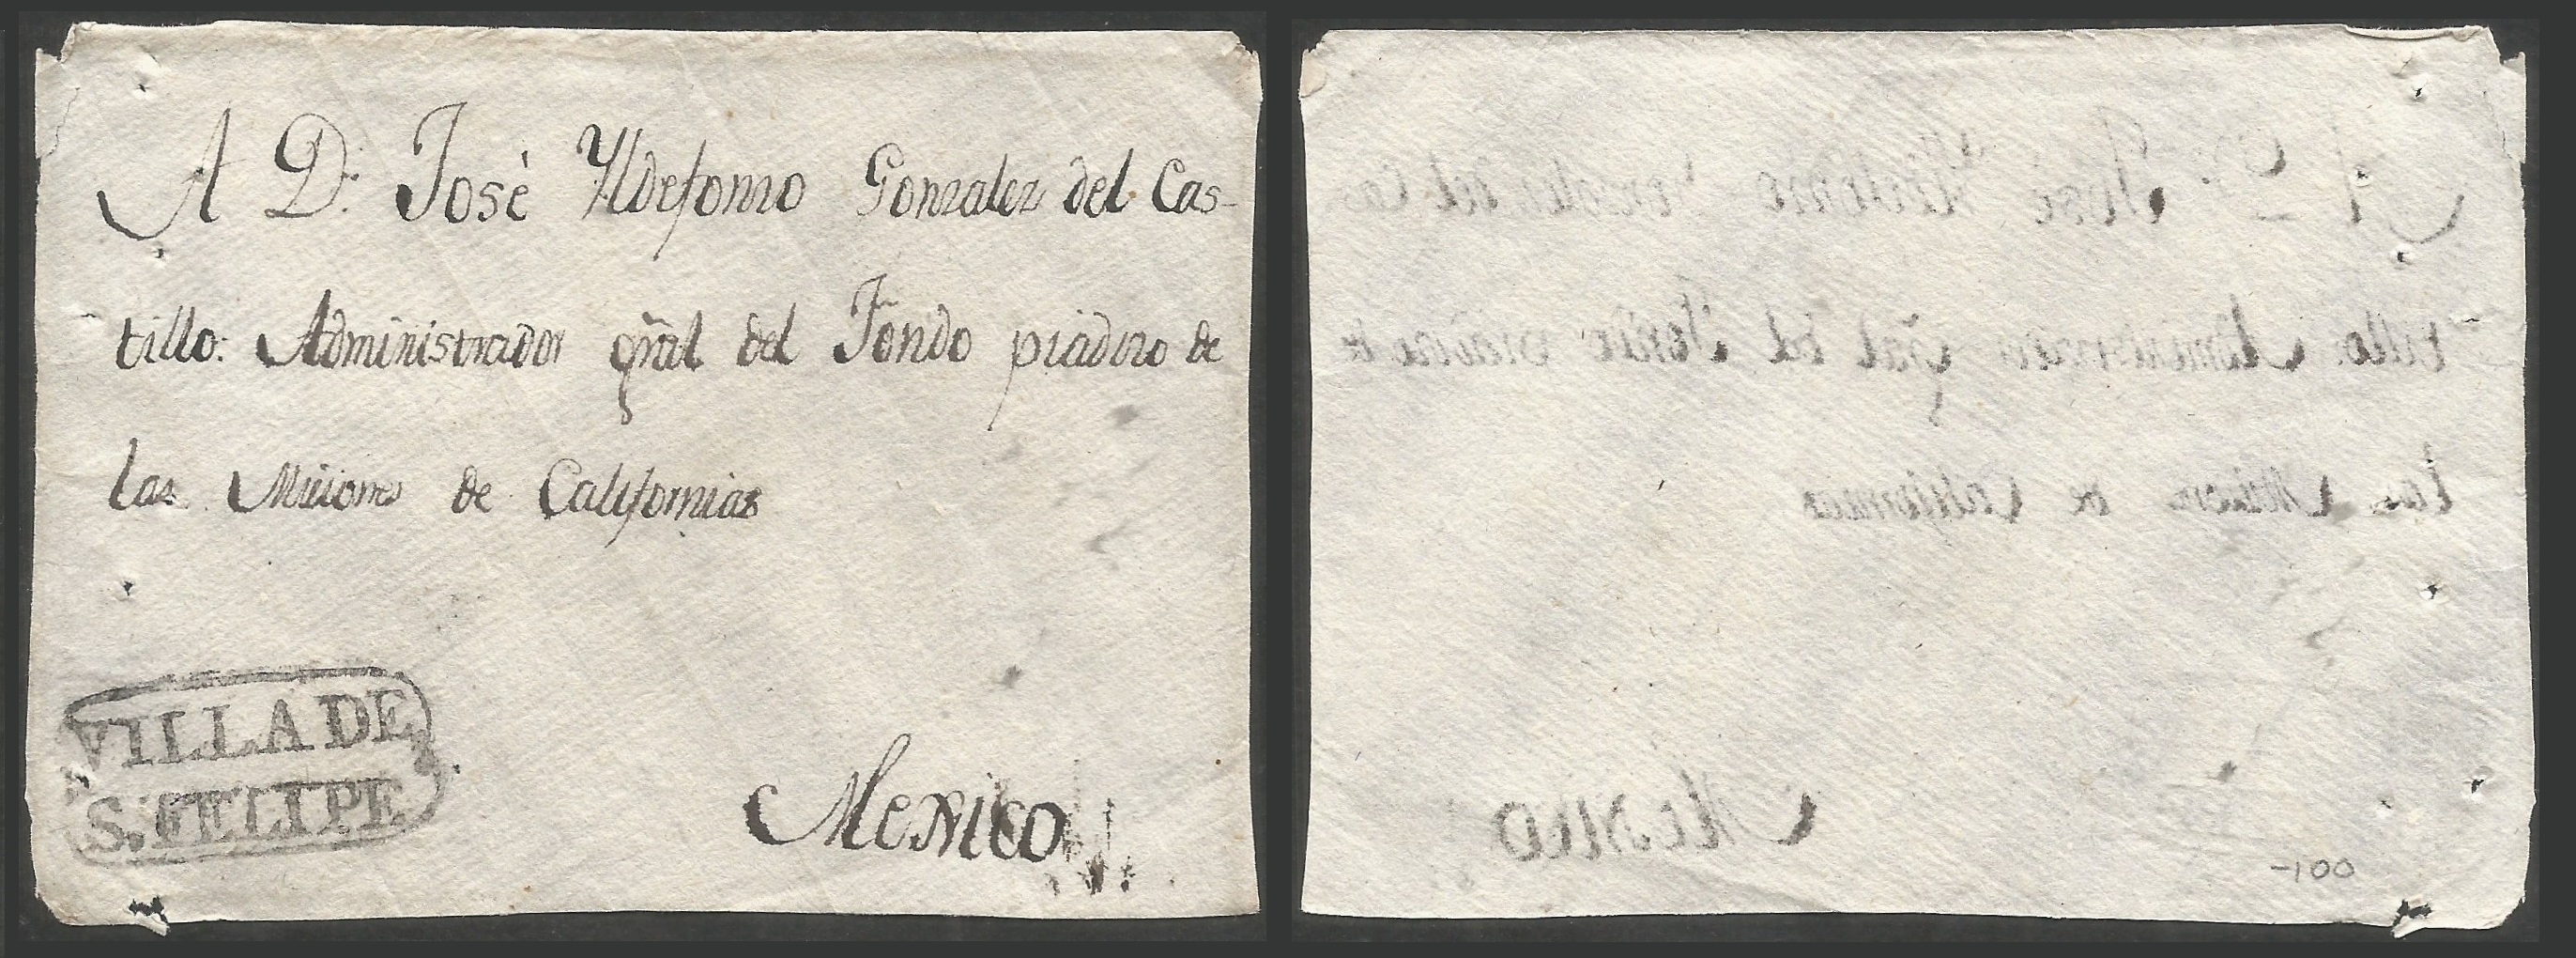 A D. Josè Yldefonzo Gonzalez del Cas-
tillo: Administrador gr̃al del Fondo piadozo de
las Misiones de Californias
VILLA DE
S. FELIPE
Mexico
-100